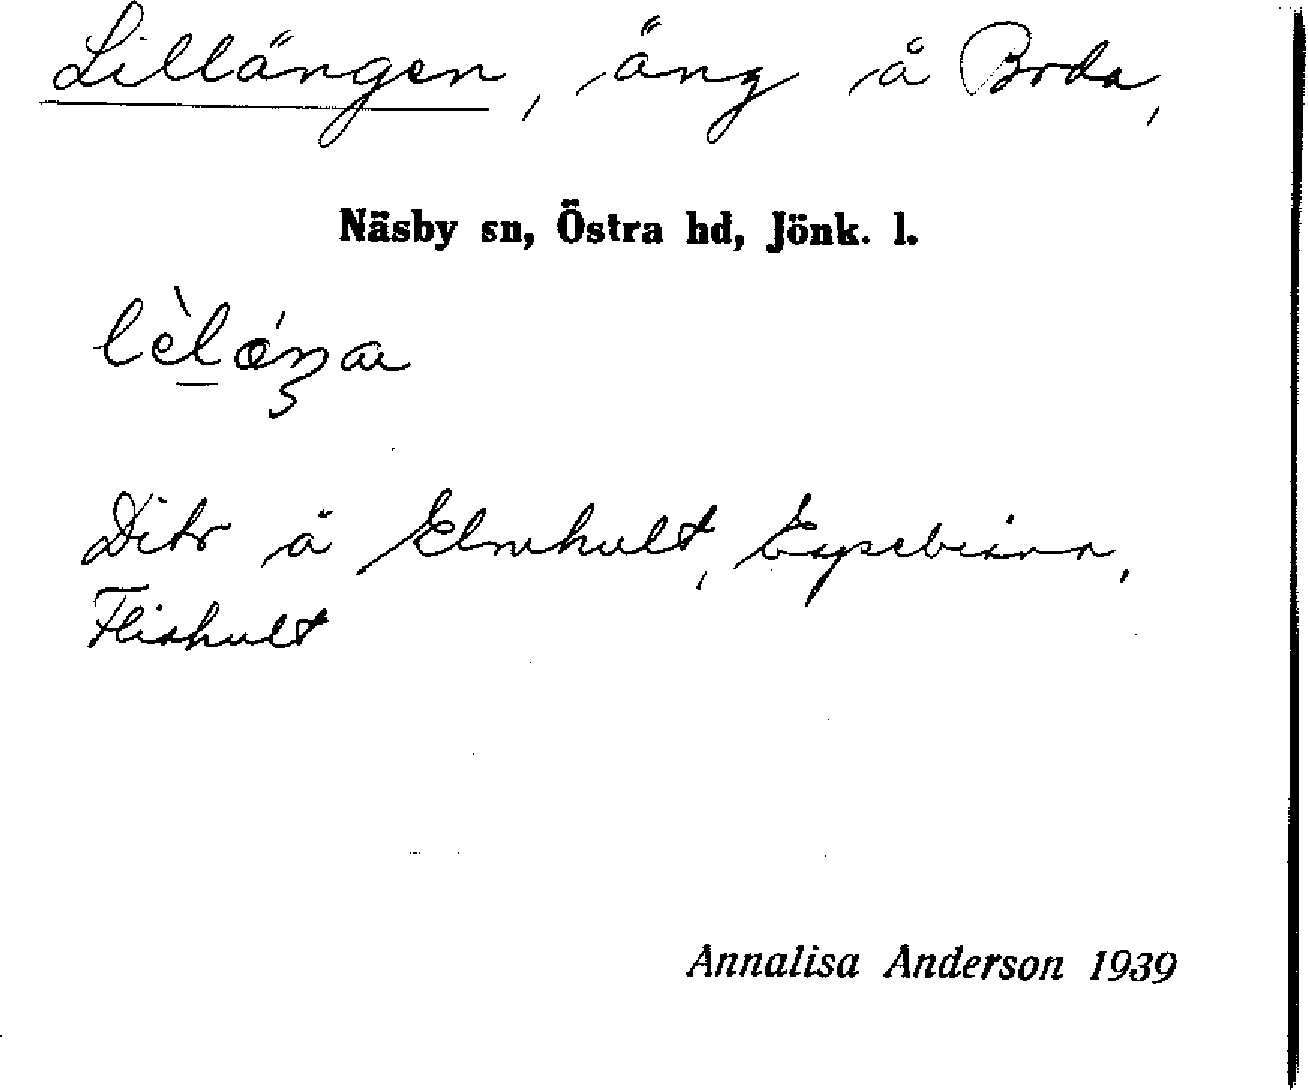 Lillängen, äng å Boda,
Näsby sn, Östra hd, Jönk. l.
Dito å Elmhult,
Flishult
Annalisa Anderson 1939